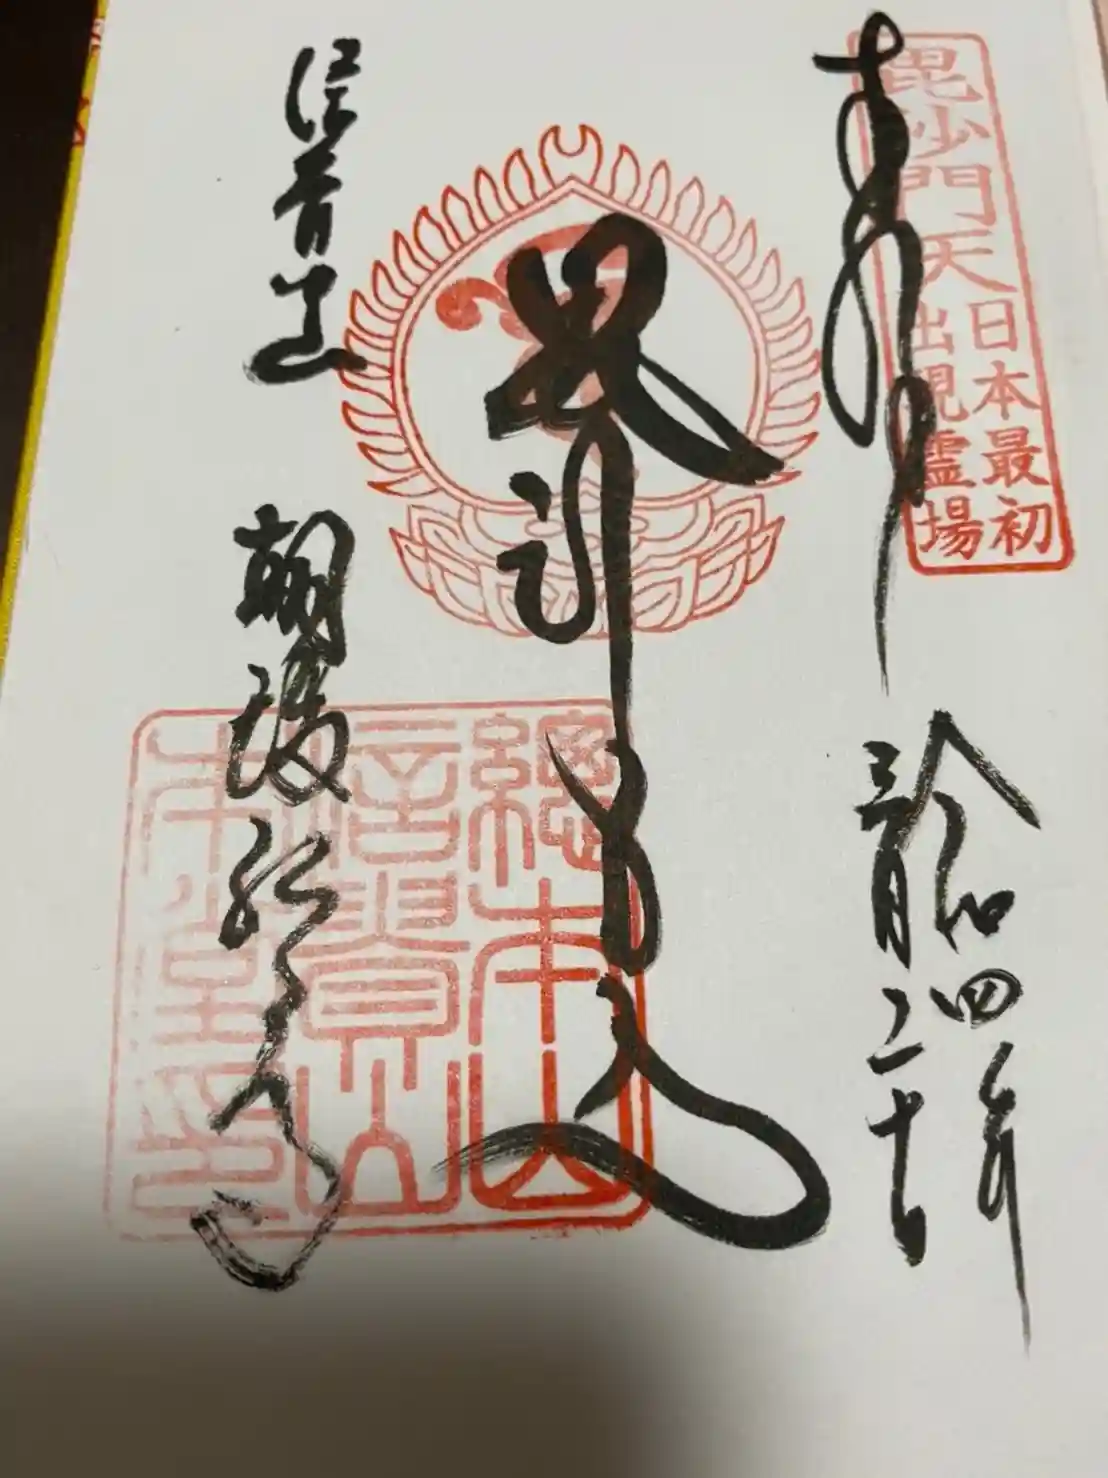 毘沙門天
日本最初
出現霊場
奉拝
令和四年
三月二十日
毘沙門天
信貴山
朝護孫子寺
總本山
信貴山
本堂印